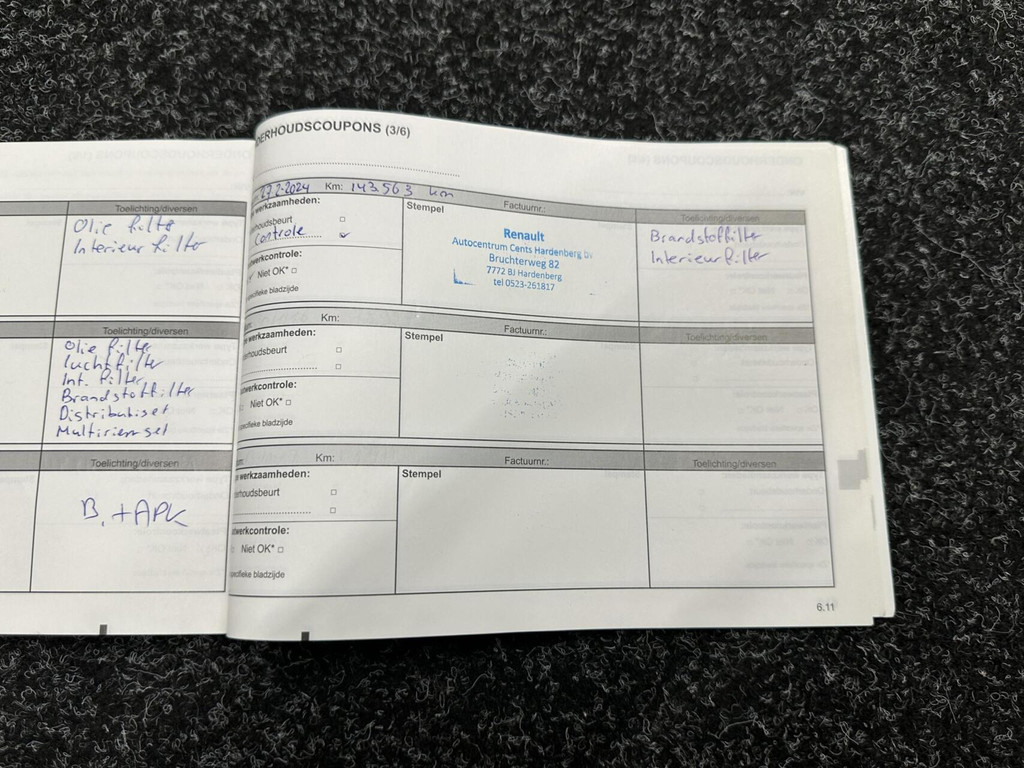 Toelichting/diversen
Olie filter
Interieur filter
Toelichting/diversen
Olie filter
luchtfilter
Int. filter
Brandstoffilter
Distributieset
Multiriem set
Toelichting/diversen
B. + APK
DERHOUDSCOUPONS (3/6)
27-2-2024 Km: 143563 km
werkzaamheden:
erhoudsbeurt
Controle
twerkcontrole:
Niet OK*
specifieke bladzijde
Stempel
Factuurnr.:
Renault
Autocentrum Cents Hardenberg bv
Bruchterweg 82
7772 BJ Hardenberg
tel 0523-261817
Toelichting/diversen
Brandstoffilter
Interieurfilter
Km:
werkzaamheden:
erhoudsbeurt
twerkcontrole:
Niet OK*
specifieke bladzijde
Stempel
Factuurnr.:
Toelichting/diversen
Km:
werkzaamheden:
erhoudsbeurt
twerkcontrole:
Niet OK*
specifieke bladzijde
Stempel
Factuurnr.:
Toelichting/diversen
6.11